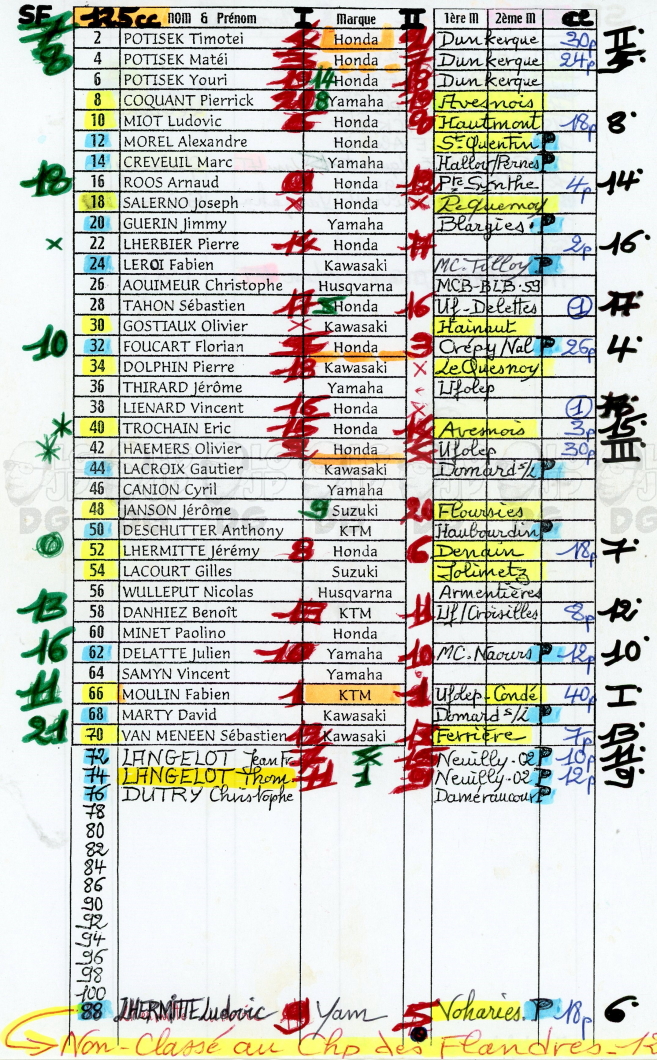 SF 125cc NOM & Prénom I Marque II 1ère M 2ème M cl
2 POTISEK Timotei Honda Dunkerque 30p II
8 4 POTISEK Matéi Honda Dunkerque 24p
6 POTISEK Youri 14 Honda Dunkerque
8 COQUANT Pierrick 8 Yamaha Avesnois
10 MIOT Ludovic Honda 9 Hautmont 18p 8
12 MOREL Alexandre Honda St Quentin P
14 CREVEUIL Marc Yamaha Halloy/Pernes P
18 16 ROOS Arnaud Honda Pte Synthe 4p 14
18 SALERNO Joseph x Honda x Le Quesnoy
20 GUERIN Jimmy Yamaha Blargies. P
x 22 LHERBIER Pierre 14 Honda 2p 16
24 LEROI Fabien Kawasaki MC. Filloy P
26 AOUIMEUR Christophe Husqvarna MCB-BLB-59
28 TAHON Sébastien 17 Honda 16 Uf-Delettes 1 17
30 GOSTIAUX Olivier x Kawasaki Hainaut
10 32 FOUCART Florian Honda 3 Crépy/Nal P 26p 4
34 DOLPHIN Pierre 18 Kawasaki x Le Quesnoy
36 THIRARD Jérôme Yamaha Ufolep
38 LIENARD Vincent 16 Honda x 1
* 40 TROCHAIN Eric 15 Honda Avesnois 3p 15
* 42 HAEMERS Olivier Honda Ufolep 30p III
44 LACROIX Gautier Kawasaki Domard s/L P
46 CANION Cyril Yamaha
48 JANSON Jérôme 9 Suzuki 20 Floursies
50 DESCHUTTER Anthony KTM Haubourdin P
52 LHERMITTE Jérémy 8 Honda 6 Denain 18p 7
54 LACOURT Gilles Suzuki Jolimetz
56 WULLEPUT Nicolas Husqvarna Armentières
13 58 DANHIEZ Benoît KTM 11 Uf/Croisilles 8p 12
60 MINET Paolino Honda
16 62 DELATTE Julien 10 Yamaha 10 MC. Naours P 12p 10
64 SAMYN Vincent Yamaha
11 66 MOULIN Fabien 1 KTM 1 Ufolep-Condé 40p I
68 MARTY David Kawasaki Domard s/L P
21 70 VAN MENEEN Sébastien 12 Kawasaki 13 Ferrière 7p 13
72 LANGELOT Jeanfr Neuilly-02 P 10p 11
74 LANGELOT Thom 11 1 Neuilly-02 P 12p 9
76 DUTRY Christophe Daméraucourt P
78
80
82
84
86
90
92
94
96
98
100
88 LHERMITTE Ludovic Yam 5 Voharies. P 18p 6
Non-Classé au Chp des Flandres-12